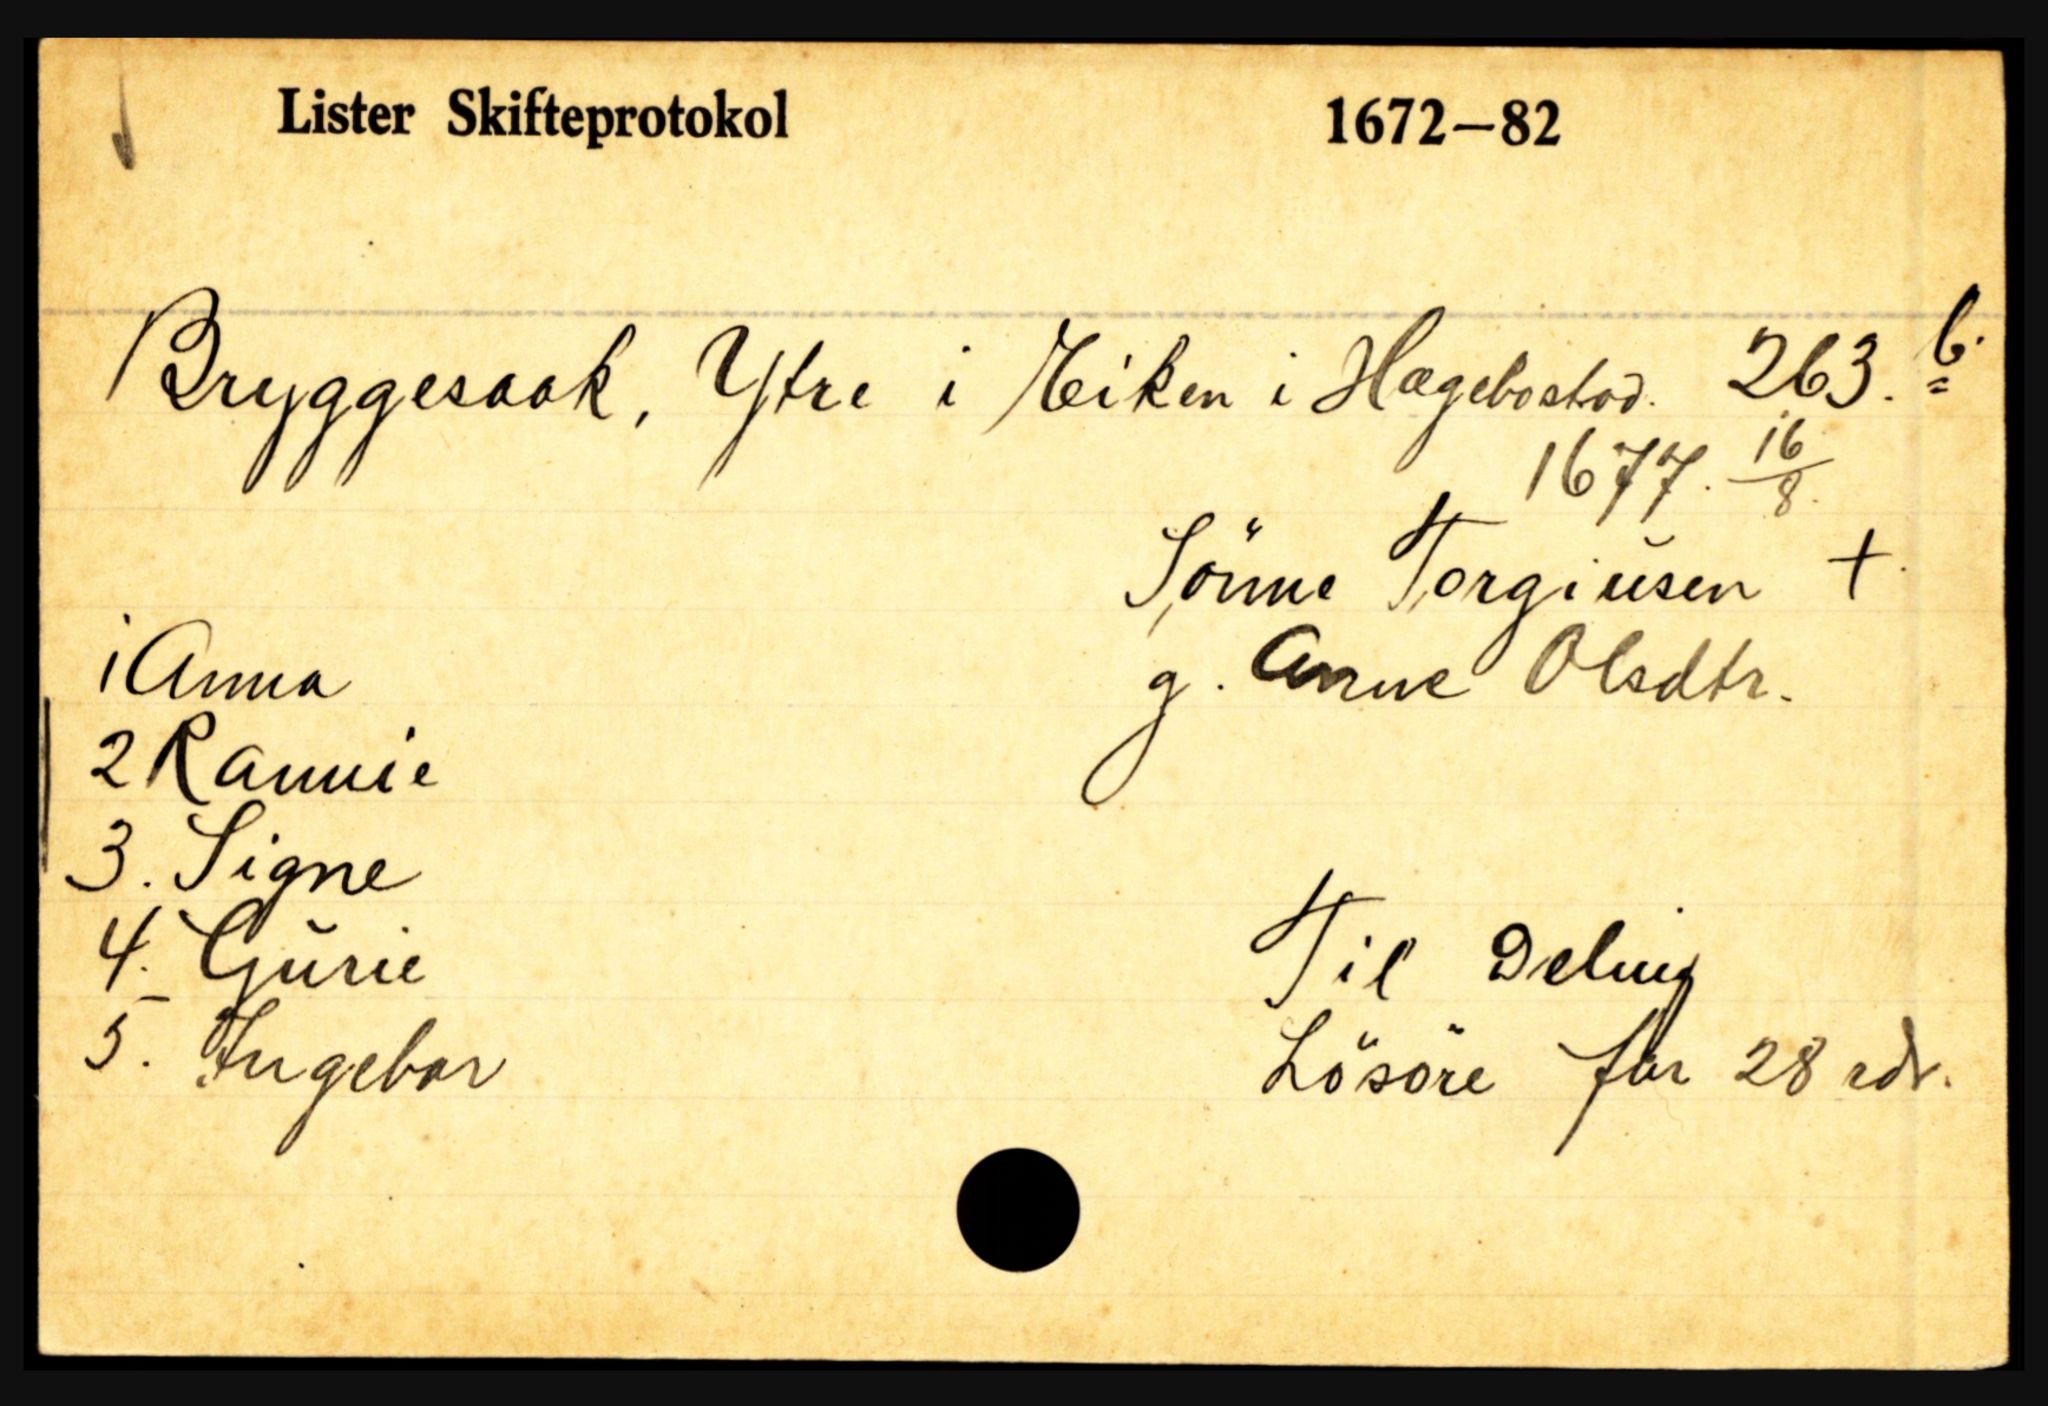 Lister Skifteprotokol 1672–82
Bryggesaak, Ytre i Eiken i Hægebostad. 263. b.
1677. 16/8.
Sönne Torgiusen +
g. Anne Olsdtr.
1 Anna
2 Rannie
3. Signe
4. Gŭrie
5. Ingebor
Til Deling
Lösöre for 28 rdr.